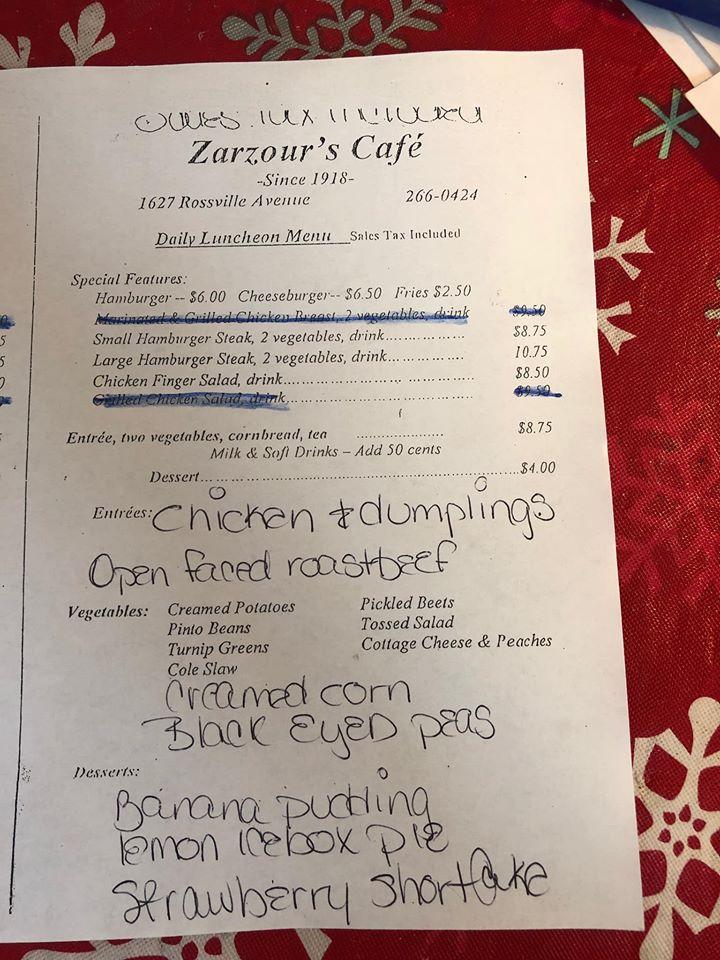 Zarzour's Café
-Since 1918-
1627 Rossville Avenue 266-0424
Daily Luncheon Menu Sales Tax Included
Special Features:
Hamburger -- $6.00 Cheeseburger-- $6.50 Fries $2.50
Marinated & Grilled Chicken Breast, 2 vegetables, drink $9.50
Small Hamburger Steak, 2 vegetables, drink.................. $8.75
Large Hamburger Steak, 2 vegetables, drink................. 10.75
Chicken Finger Salad, drink.......................................... $8.50
Grilled Chicken Salad, drink.......................................... $9.50
Entrée, two vegetables, cornbread, tea ...................... $8.75
Milk & Soft Drinks – Add 50 cents
Dessert.....................................................................$4.00
Entrées: Chicken & dumplings
Open faced roastbeef
Vegetables: Creamed Potatoes Pickled Beets
Pinto Beans Tossed Salad
Turnip Greens Cottage Cheese & Peaches
Cole Slaw
Creamed corn
Black Eyed peas
Desserts:
Banana pudding
lemon icebox pie
Strawberry shortcake